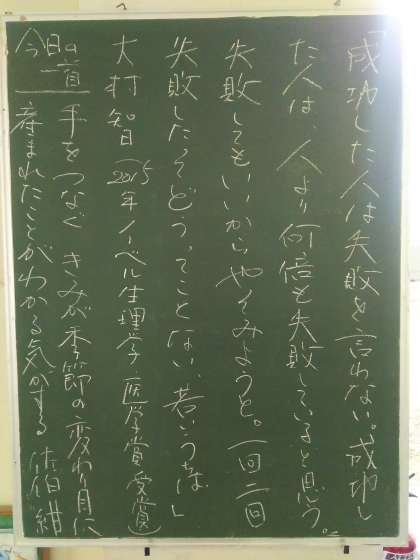 「成功した人は失敗を言わない。成功し
た人は、人より何倍も失敗していると思う。
失敗してもいいからやってみようと。一回二回
失敗したってどうってことない、若いうちは」
大村智日(2015年ノーベル生理学・医学賞受賞)
今日の一首
手をつなぐ きみが季節の変わり目に
産まれたことがわかる気がする 佐伯紺